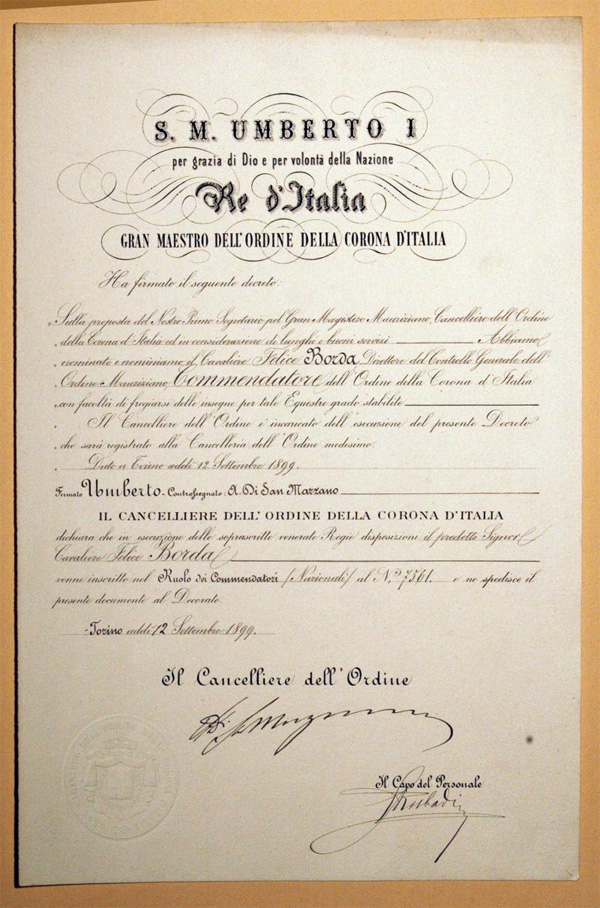 S. M. UMBERTO I
per grazia di Dio e per volontà della Nazione
Re d'Italia
GRAN MAESTRO DELL'ORDINE DELLA CORONA D'ITALIA
Ha firmato il seguente decreto:
Sulla proposta del Nostro Primo Segretario pel Gran Magistero Mauriziano, Cancelliere dell'Ordine
della Corona d'Italia ed in considerazione di lunghi e buoni servizi Abbiamo
nominato e nominiamo il Cavaliere Felice Borda Direttore del Controllo Generale dell'
Ordine Mauriziano Commendatore dell'Ordine della Corona d'Italia
con facoltà di fregiarsi delle insegne per tale Equestre grado stabilite
Il Cancelliere dell'Ordine è incaricato dell'esecuzione del presente Decreto
che sarà registrato alla Cancelleria dell'Ordine medesimo.
Dato a Torino addì 12 Settembre 1899.
Firmato Umberto - Controssegnato: A. Di San Marzano
IL CANCELLIERE DELL'ORDINE DELLA CORONA D'ITALIA
dichiara che in esecuzione delle soprascritte venerate Regie disposizioni il predetto Signor
Cavaliere Felice Borda
venne inscritto nel Ruolo dei Commendatori (Nazionali) al N.º 7561. e ne spedisce il
presente documento al Decorato.
Torino addì 12 Settembre 1899.
Il Cancelliere dell'Ordine
Il Capo del Personale